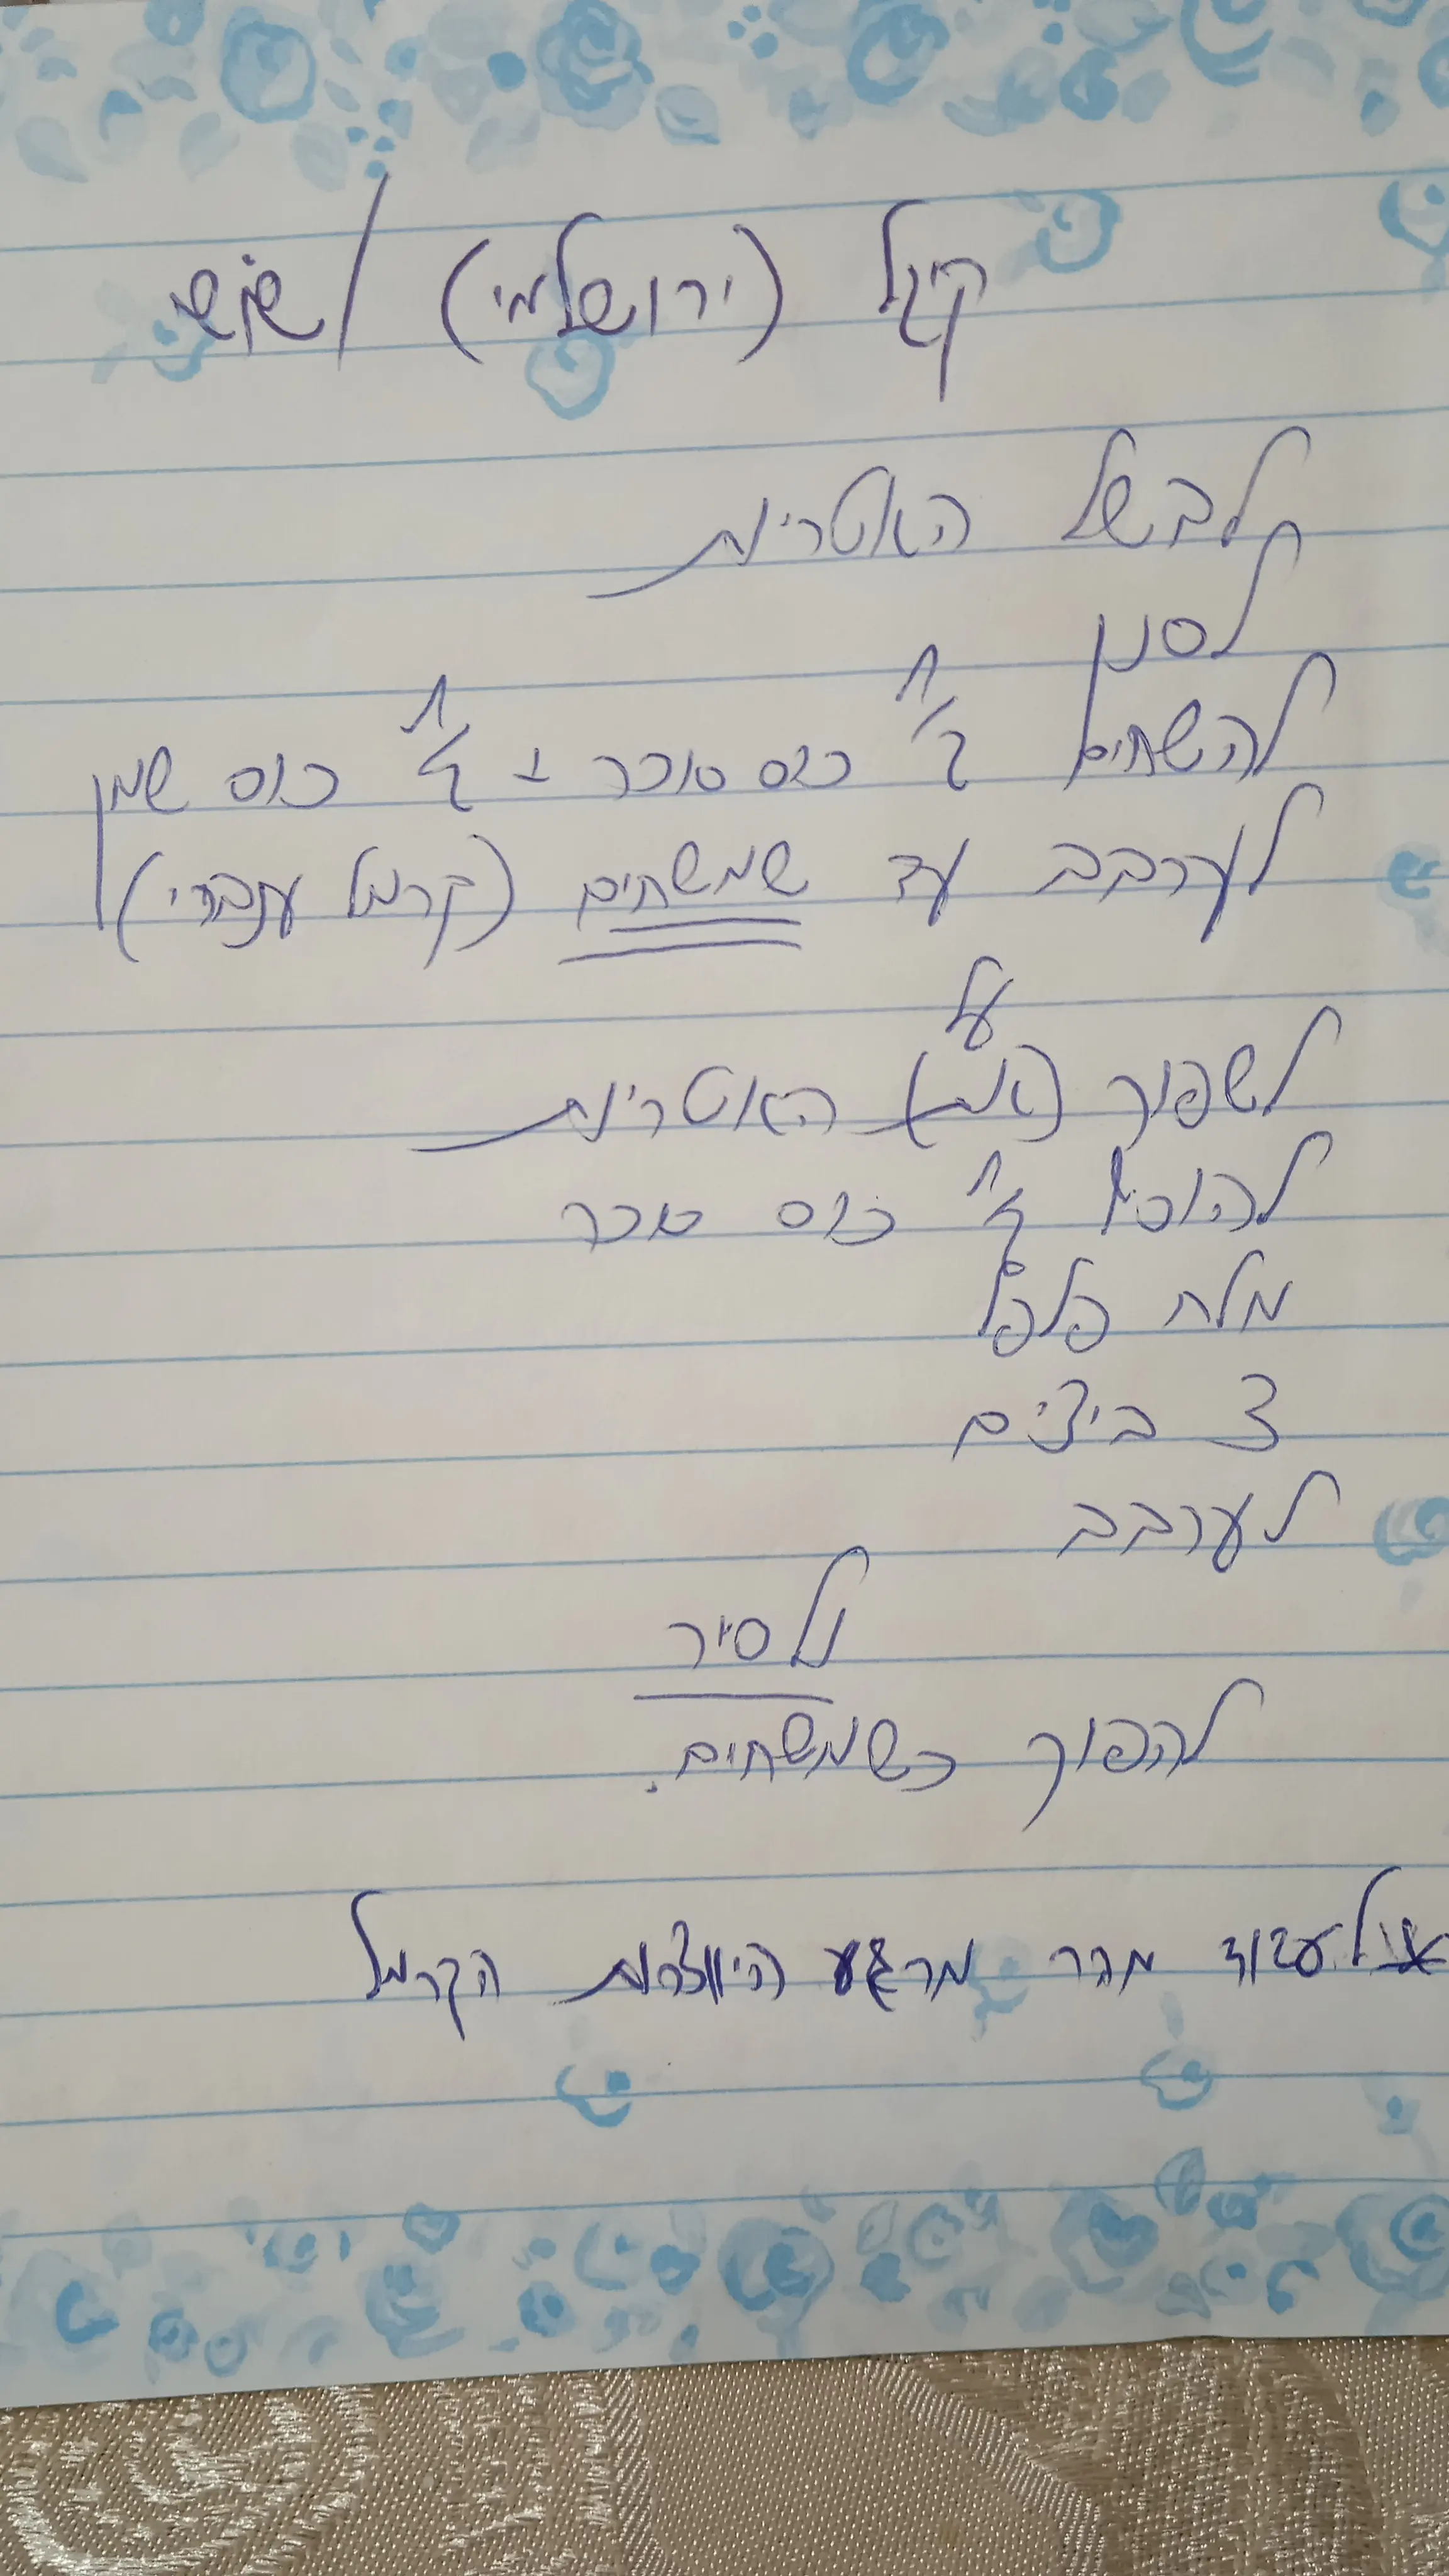 קיגל (ירושלמי) / שושי
לבשל האטריות
לסנן
להשחים 1/2 כוס סוכר + 1/2 כוס שמן
לערבב עד שמשחים (קרמל ענברי)
על
לשפוך (את) האטריות
להוסיף 1/2 כוס סוכר
מלח פלפל
3 ביצים
לערבב
ולסיר
להפוך כשמשחים.
לעבוד מהר מרגע היווצרות הקרמל